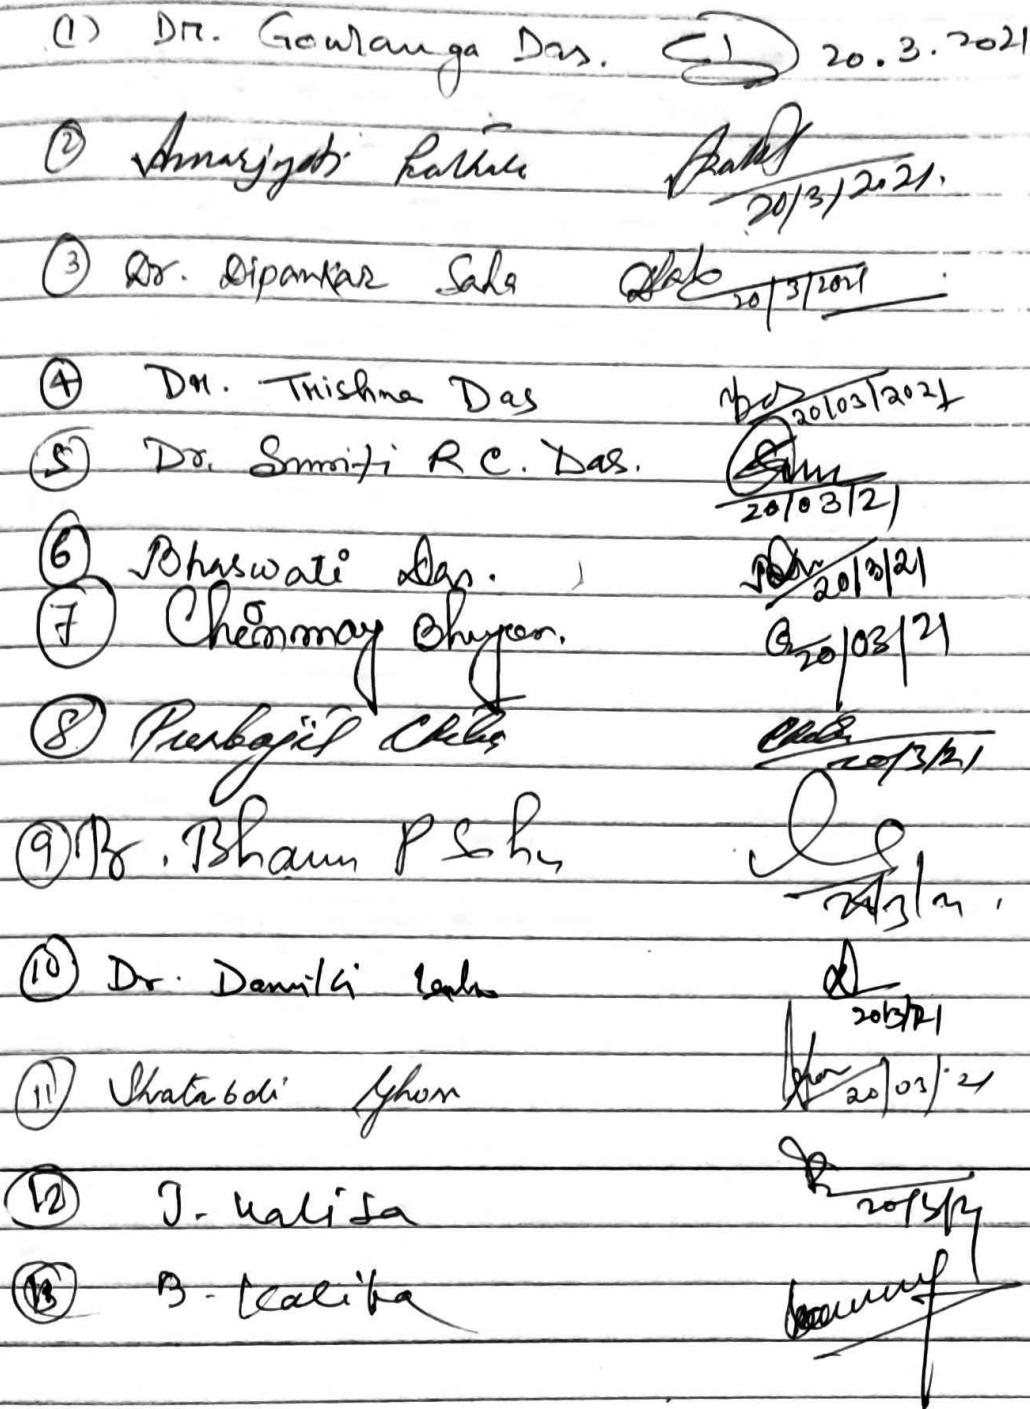 (1) Dr. Gouranga Das. 20.3.2021
(2) Amarjyoti 20/3/2021.
(3) Dr. Dipankar Saha 20/3/2021
(4) Dr. Trishna Das 20/03/2021
(5) Dr. Smriti R C. Das. 20/03/21
(6) Bhaswati Das. 20/3/21
(7) Chinmay Bhuyan. 20/03/21
(8) 20/3/21
(9) Dr. P Sahu
(10) Dr. 20/3/21
(11) Shatabdi 20/03/21
(12) J. Kalita 20/3/21
(13) B. Kalita